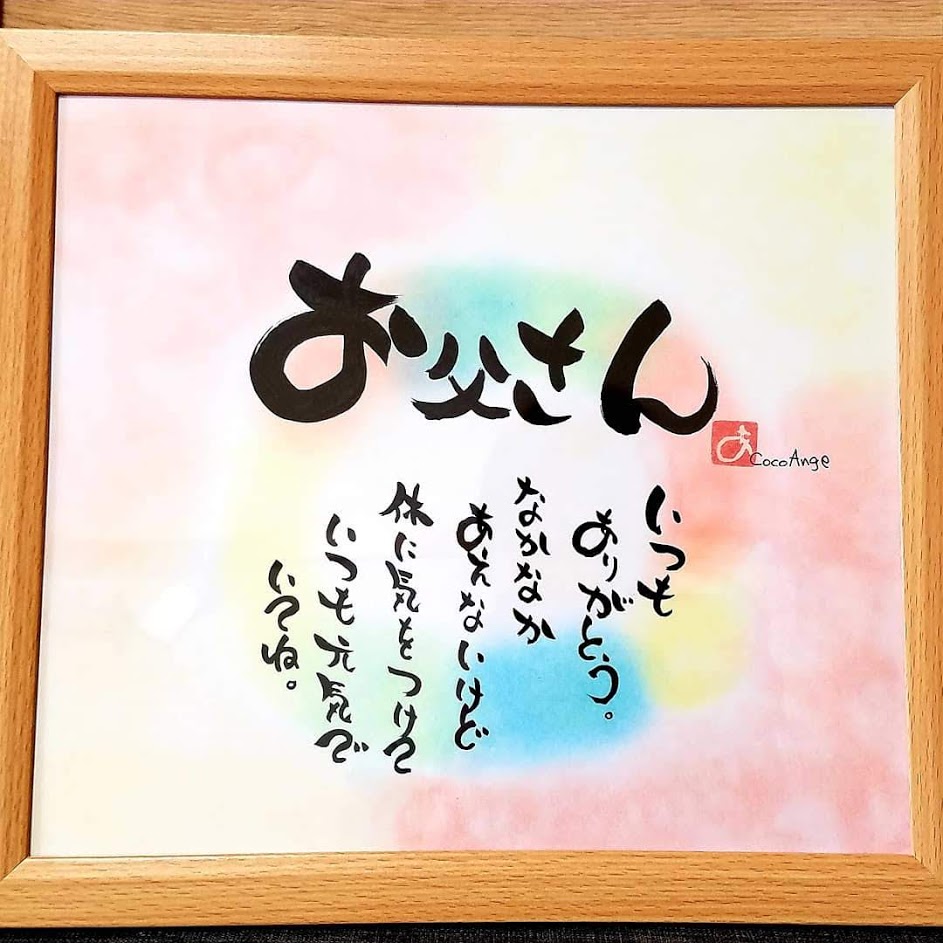 お父さん
あ
CocoAnge
いつも
ありがとう。
なかなか
あえないけど
体に気をつけて
いつも元気で
いてね。